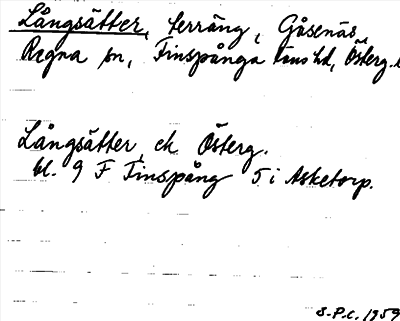 Långsätter, terräng, Gåsenäs,
Regna sn, Finspånga läns hd, Österg.
Långsätter, ek Österg.
bl. 9 F Finspång 5 i Asketorp.
S.P.C. 1959